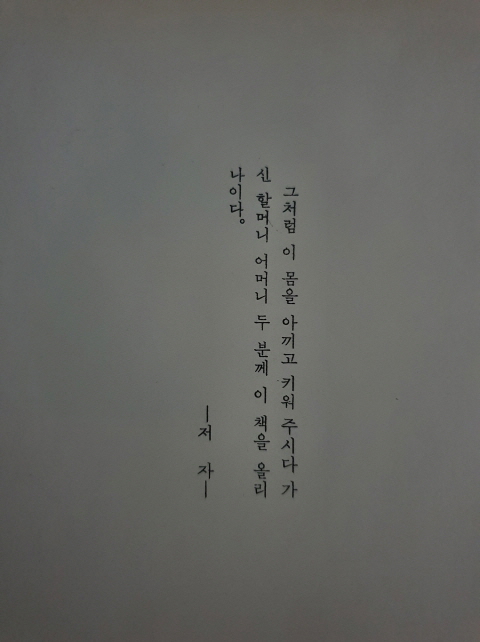 그처럼 이 몸을 아끼고 키워 주시다 가
신 할머니 어머니 두 분께 이 책을 올리
나이다。
―저 자―